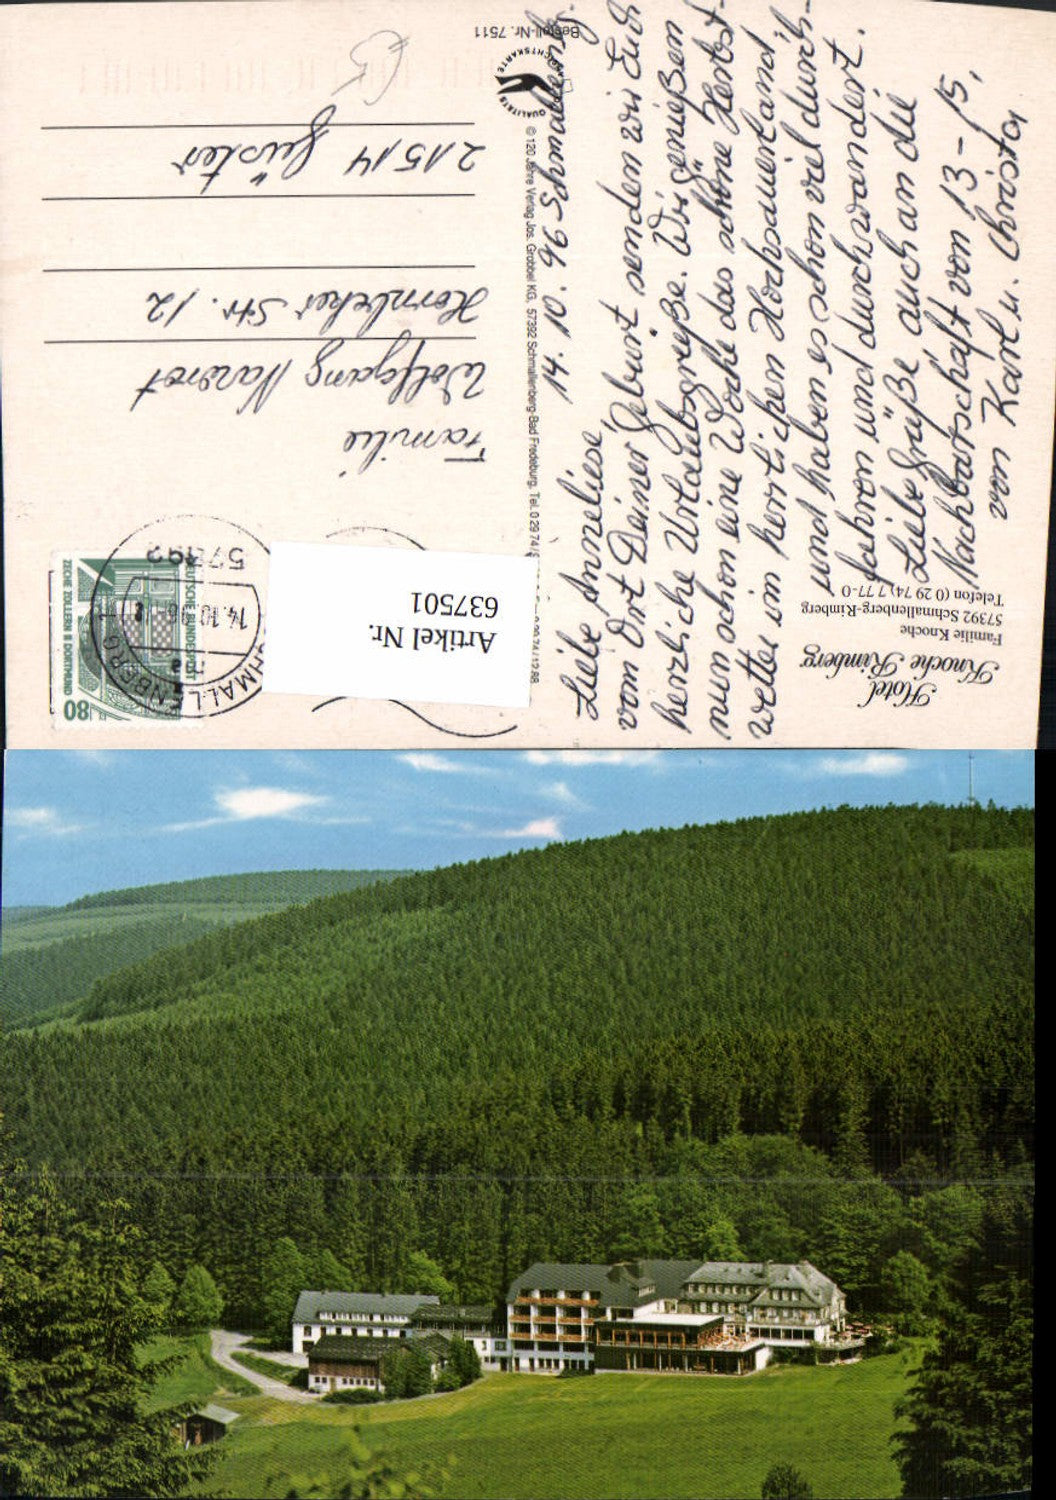 Hotel
Knoche Rimberg
Familie Knoche
57392 Schmallenberg-Rimberg
Telefon (0 29 74) 7 77-0
14. 10. 96 Schmallenbg.
Liebe Anneliese,
vom Ort Deiner Geburt senden wir Euch
herzliche Urlaubsgrüße. Wir genießen
nun schon eine Woche das schöne Herbst-
wetter im herrlichen Hochsauerland,
und haben es schon viel durch-
fahren und durchwandert.
Liebe Grüße auch an die
Nachbarschaft von 13-15,
von Karl u. Christa
© 120 Jahre Verlag Jos. Grobbel KG, 57392 Schmallenberg-Bad Fredeburg, Tel. 0 29 74 /
QUALITÄTS
ANSICHTSKARTE
Bestell-Nr. 7511
DEUTSCHE BUNDESPOST
ZECHE ZOLLERN II DORTMUND
80
57392
14.10.96
SCHMALLENBERG 1
Artikel Nr.
637501
Familie
Wolfgang Nawrot
Hornbeker Str. 12
21514 Güster